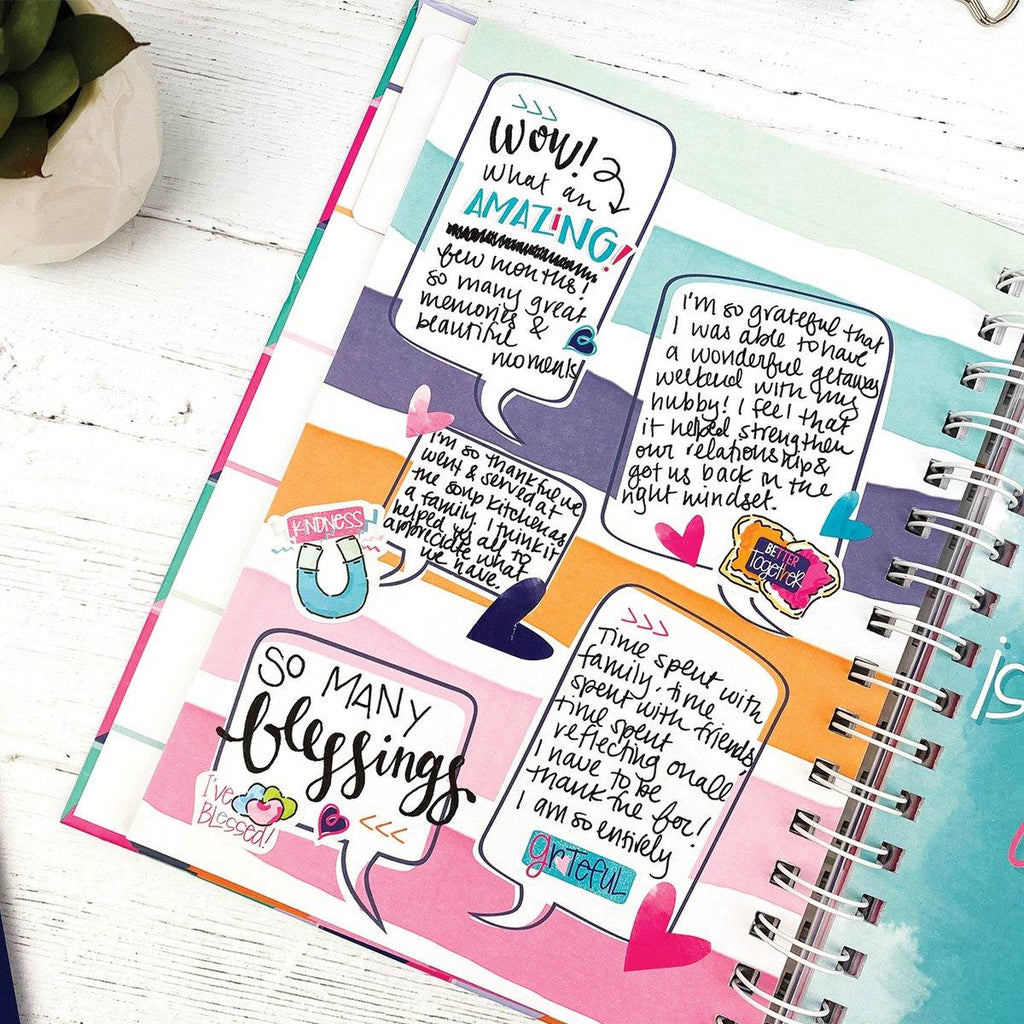 Wow!
What an
AMAZiNG!
few months!
so many great
memories &
beautiful
moments
I'm so grateful that
I was able to have
a wonderful getaway
weekend with my
hubby! I feel that
it helped strengthen
our relationship &
got us back in the
right mindset.
BETTER
TogetHER
I'm so thankful we
went & served at
the soup kitchen as
a family. I think it
helped us all to
appreciate what
we have.
KNDNESS
SO MANY
blessings
I'VE
BLESSED!
Time spent with
family, time
spent with friends,
time spent
reflecting on all
I have to be
thankful for!
I am so entirely
grTEFUL
is